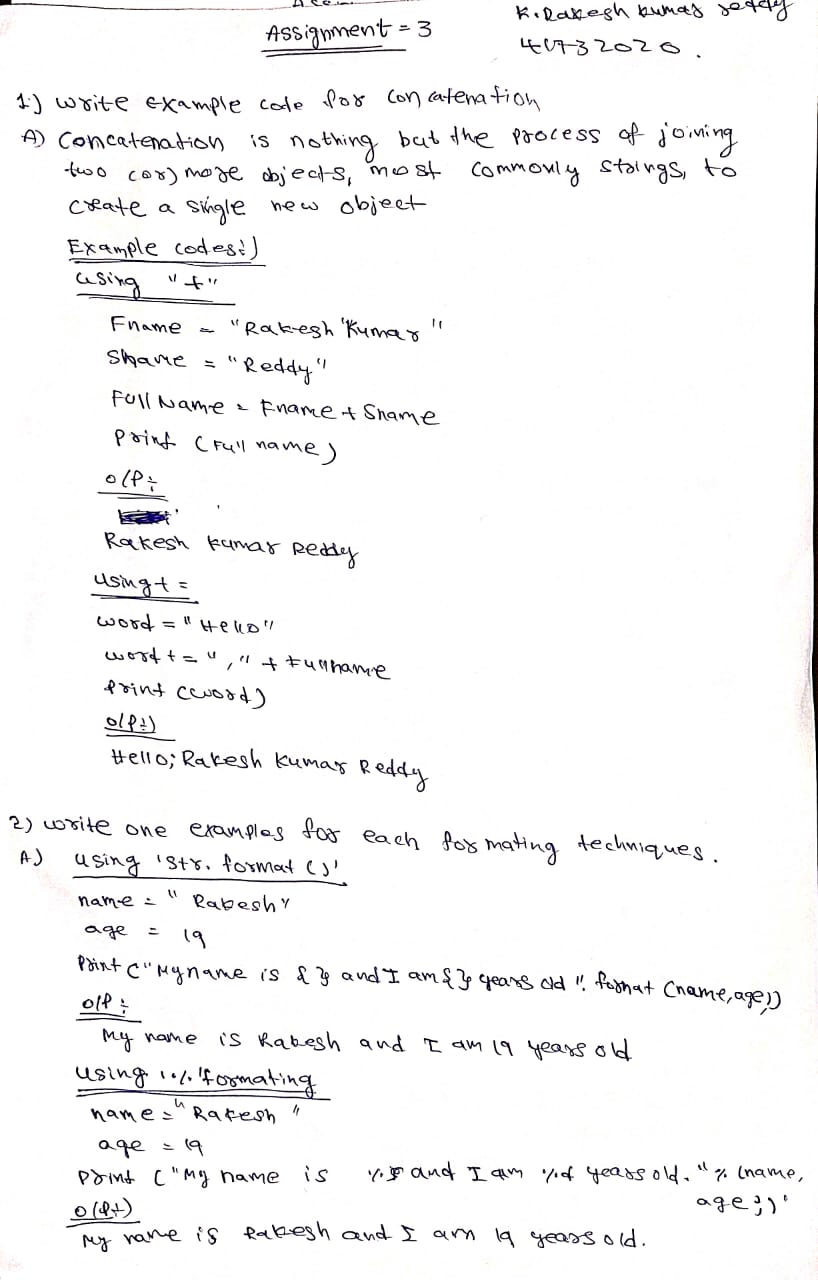 K. Rakesh kumar reddy
Assignment = 3
1) write Example code for concatenation
A) Concatenation is nothing but the process of joining
two (or) more objects, most commonly strings, to
create a single new object
Example codes:)
using "+"
Fname = "Rakesh Kumar"
Sname = "Reddy"
Full Name = Fname + Sname
Print (Full name)
o/p:
Rakesh Kumar Reddy
using + =
word = "Hello"
word + = "," + Fullname
Print (word)
o/p:)
Hello; Rakesh Kumar Reddy
2) write one examples for each formating techniques.
A) using 'str. format ()'
name = "Rakesh"
age = 19
Print ("My name is {} and I am {} years old". format (name, age))
o/p:
My name is Rakesh and I am 19 years old
using '%' formating
name = "Rakesh"
age = 19
print ("My name is %s and I am %d years old." % (name,
age))
o/p:)
My name is Rakesh and I am 19 years old.